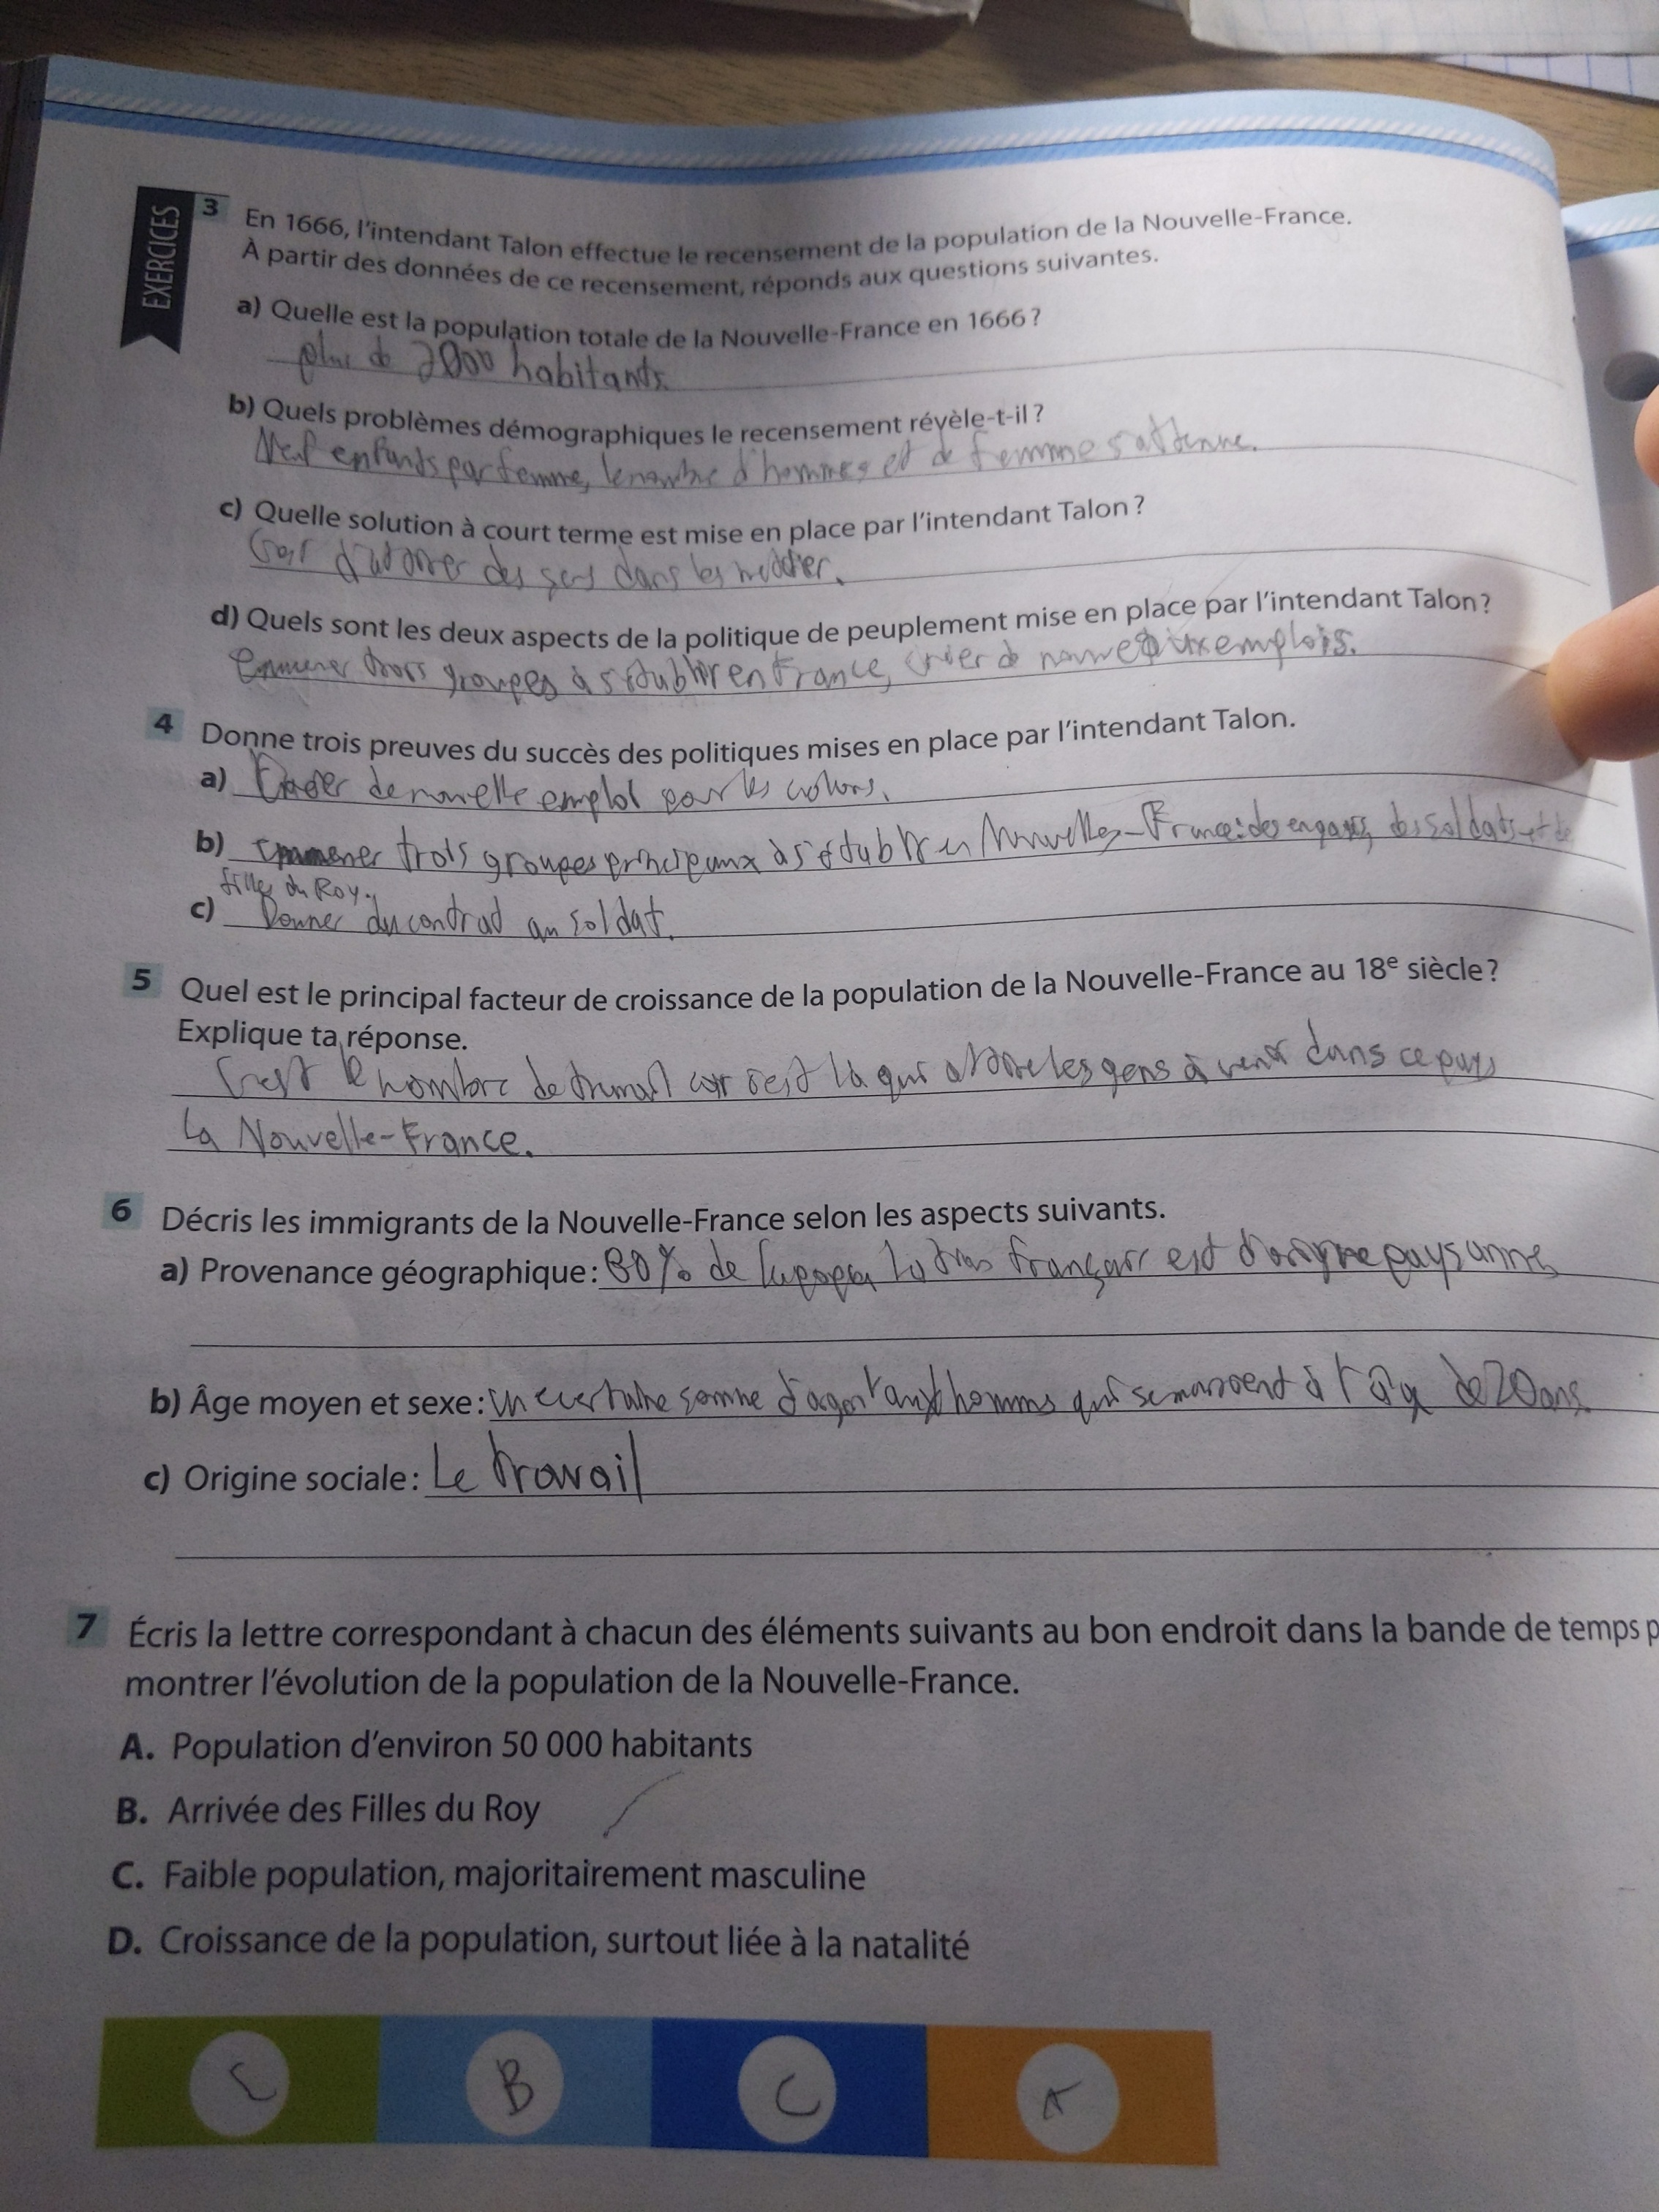 EXERCICES
3 En 1666, l'intendant Talon effectue le recensement de la population de la Nouvelle-France.
À partir des données de ce recensement, réponds aux questions suivantes.
a) Quelle est la population totale de la Nouvelle-France en 1666 ?
plus de 2000 habitants.
b) Quels problèmes démographiques le recensement révèle-t-il ?
Neuf enfants par femme, le nombre d'hommes et de femme s'attenne.
c) Quelle solution à court terme est mise en place par l'intendant Talon ?
des gens dans les
d) Quels sont les deux aspects de la politique de peuplement mise en place par l'intendant Talon ?
Emmener trois groupes à s'établir en France, créer de nouveaux emplois.
4 Donne trois preuves du succès des politiques mises en place par l'intendant Talon.
a) Créer de nouvelle emploi pour les colons.
b) emmener trois groupes principaux à s'établir en Nouvelles-France: des engagés, des soldats et de
filles du Roy.
c) Donner du contrad au soldat.
5 Quel est le principal facteur de croissance de la population de la Nouvelle-France au 18e siècle ?
Explique ta réponse.
C'est le nombre de travail car c'est la qui attire les gens à venir dans ce pays
la Nouvelle-France.
6 Décris les immigrants de la Nouvelle-France selon les aspects suivants.
a) Provenance géographique : 80% de la français est d'origine paysanne
b) Âge moyen et sexe : un certaine somme d'argent aux hommes qui se marient à l'âge de 20 ans.
c) Origine sociale : Le travail
7 Écris la lettre correspondant à chacun des éléments suivants au bon endroit dans la bande de temps p
montrer l'évolution de la population de la Nouvelle-France.
A. Population d'environ 50 000 habitants
B. Arrivée des Filles du Roy
C. Faible population, majoritairement masculine
D. Croissance de la population, surtout liée à la natalité
B C A